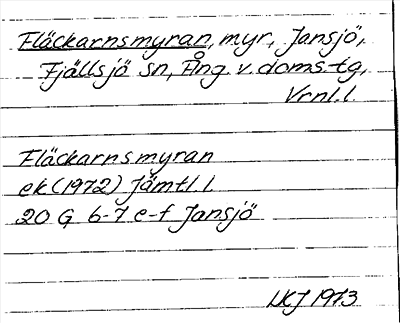 Fläckarnsmyran, myr, Jansjö,
Fjällsjö sn, Ång. v. doms.tg,
Vrnl.l.
Fläckarnsmyran
ek (1972) Jämtl. l.
20 G 6-7 e-f Jansjö
1973